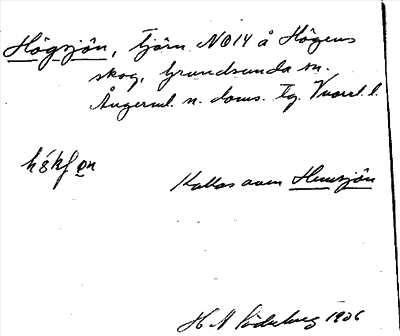 Högsjön, tjärn NO14 å Högens
skog, Grundsunda sn.
Ångerml. n. doms. tg. Vnorrl. l.
Kallas även Hemsjön
H N Söderberg 1906